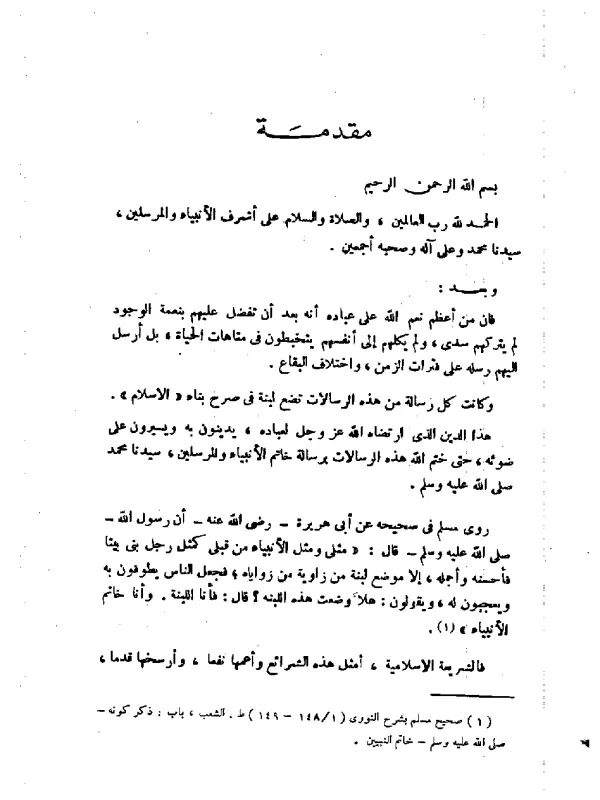 مقدمة
بسم الله الرحمن الرحيم
الحمد لله رب العالمين ، والصلاة والسلام على أشرف الأنبياء والمرسلين ،
سيدنا محمد وعلى آله وصحبه أجمعين .
وبعد :
فان من أعظم نعم الله على عباده أنه بعد أن تفضل عليهم بنعمة الوجود
لم يتركهم سدى ، ولم يكلهم إلى أنفسهم يتخبطون فى متاهات الحياة ، بل أرسل
اليهم رسله على فترات الزمن ، واختلاف البقاع .
وكانت كل رسالة من هذه الرسالات تضع لبنة فى صرح بناء « الاسلام » .
هذا الدين الذى ارتضاه الله عز وجل لعباده ، يدينون به ويسيرون على
ضوئه ، حتى ختم الله هذه الرسالات برسالة خاتم الأنبياء والمرسلين ، سيدنا محمد
صلى الله عليه وسلم .
روى مسلم فى صحيحه عن أبى هريرة – رضى الله عنه – أن رسول الله –
صلى الله عليه وسلم – قال : « مثلى ومثل الأنبياء من قبلى كمثل رجل بنى بيتا
فأحسنه وأجمله ، إلا موضع لبنة من زاوية من زواياه ، فجعل الناس يطوفون به
ويعجبون له ، ويقولون : هلا وضعت هذه اللبنه ؟ قال : فأنا اللبنة . وأنا خاتم
الأنبياء » (١) .
فالشريعة الاسلامية ، أمثل هذه الشرائع وأعمها نفعا ، وأرسخها قدما ،
(١) صحيح مسلم بشرح النووى (١٤٨/١ – ١٤٩) ط . الشعب ، باب : ذكر كونه –
صلى الله عليه وسلم – خاتم النبيين .